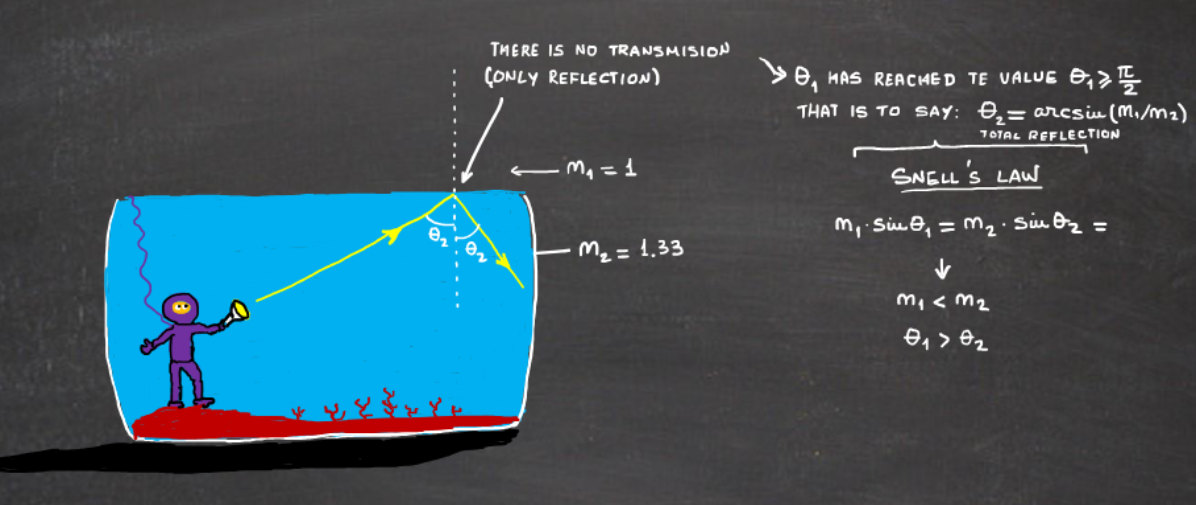 THERE IS NO TRANSMISION
(ONLY REFLECTION)
θ₁ HAS REACHED TE VALUE θ₁ ⩾ π/2
THAT IS TO SAY: θ₂ = arcsin(m₁/m₂)
TOTAL REFLECTION
SNELL'S LAW
m₁ · sin θ₁ = m₂ · sin θ₂ =
m₁ < m₂
θ₁ > θ₂
m₁ = 1
m₂ = 1.33
θ₂
θ₂